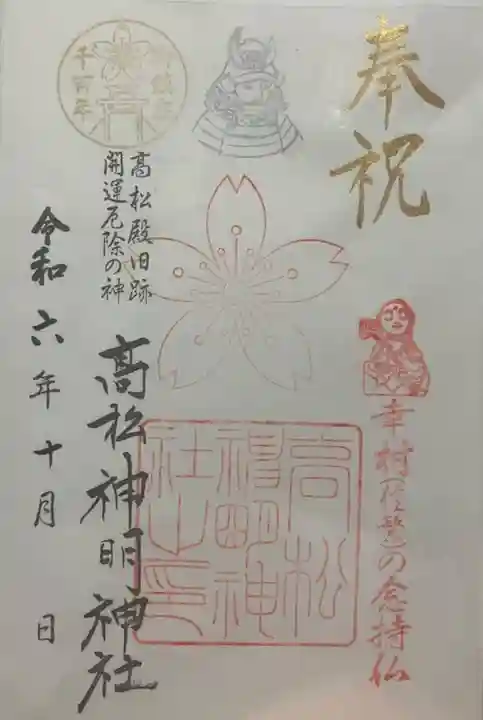 奉祝
幸村の念持仏
千百年
高松神明神社之印
高松殿旧跡
開運厄除の神
高松神明神社
令和六年十月 日